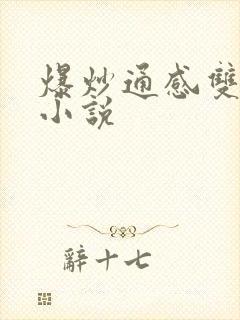 爆炒通感雙
小說
辭十七